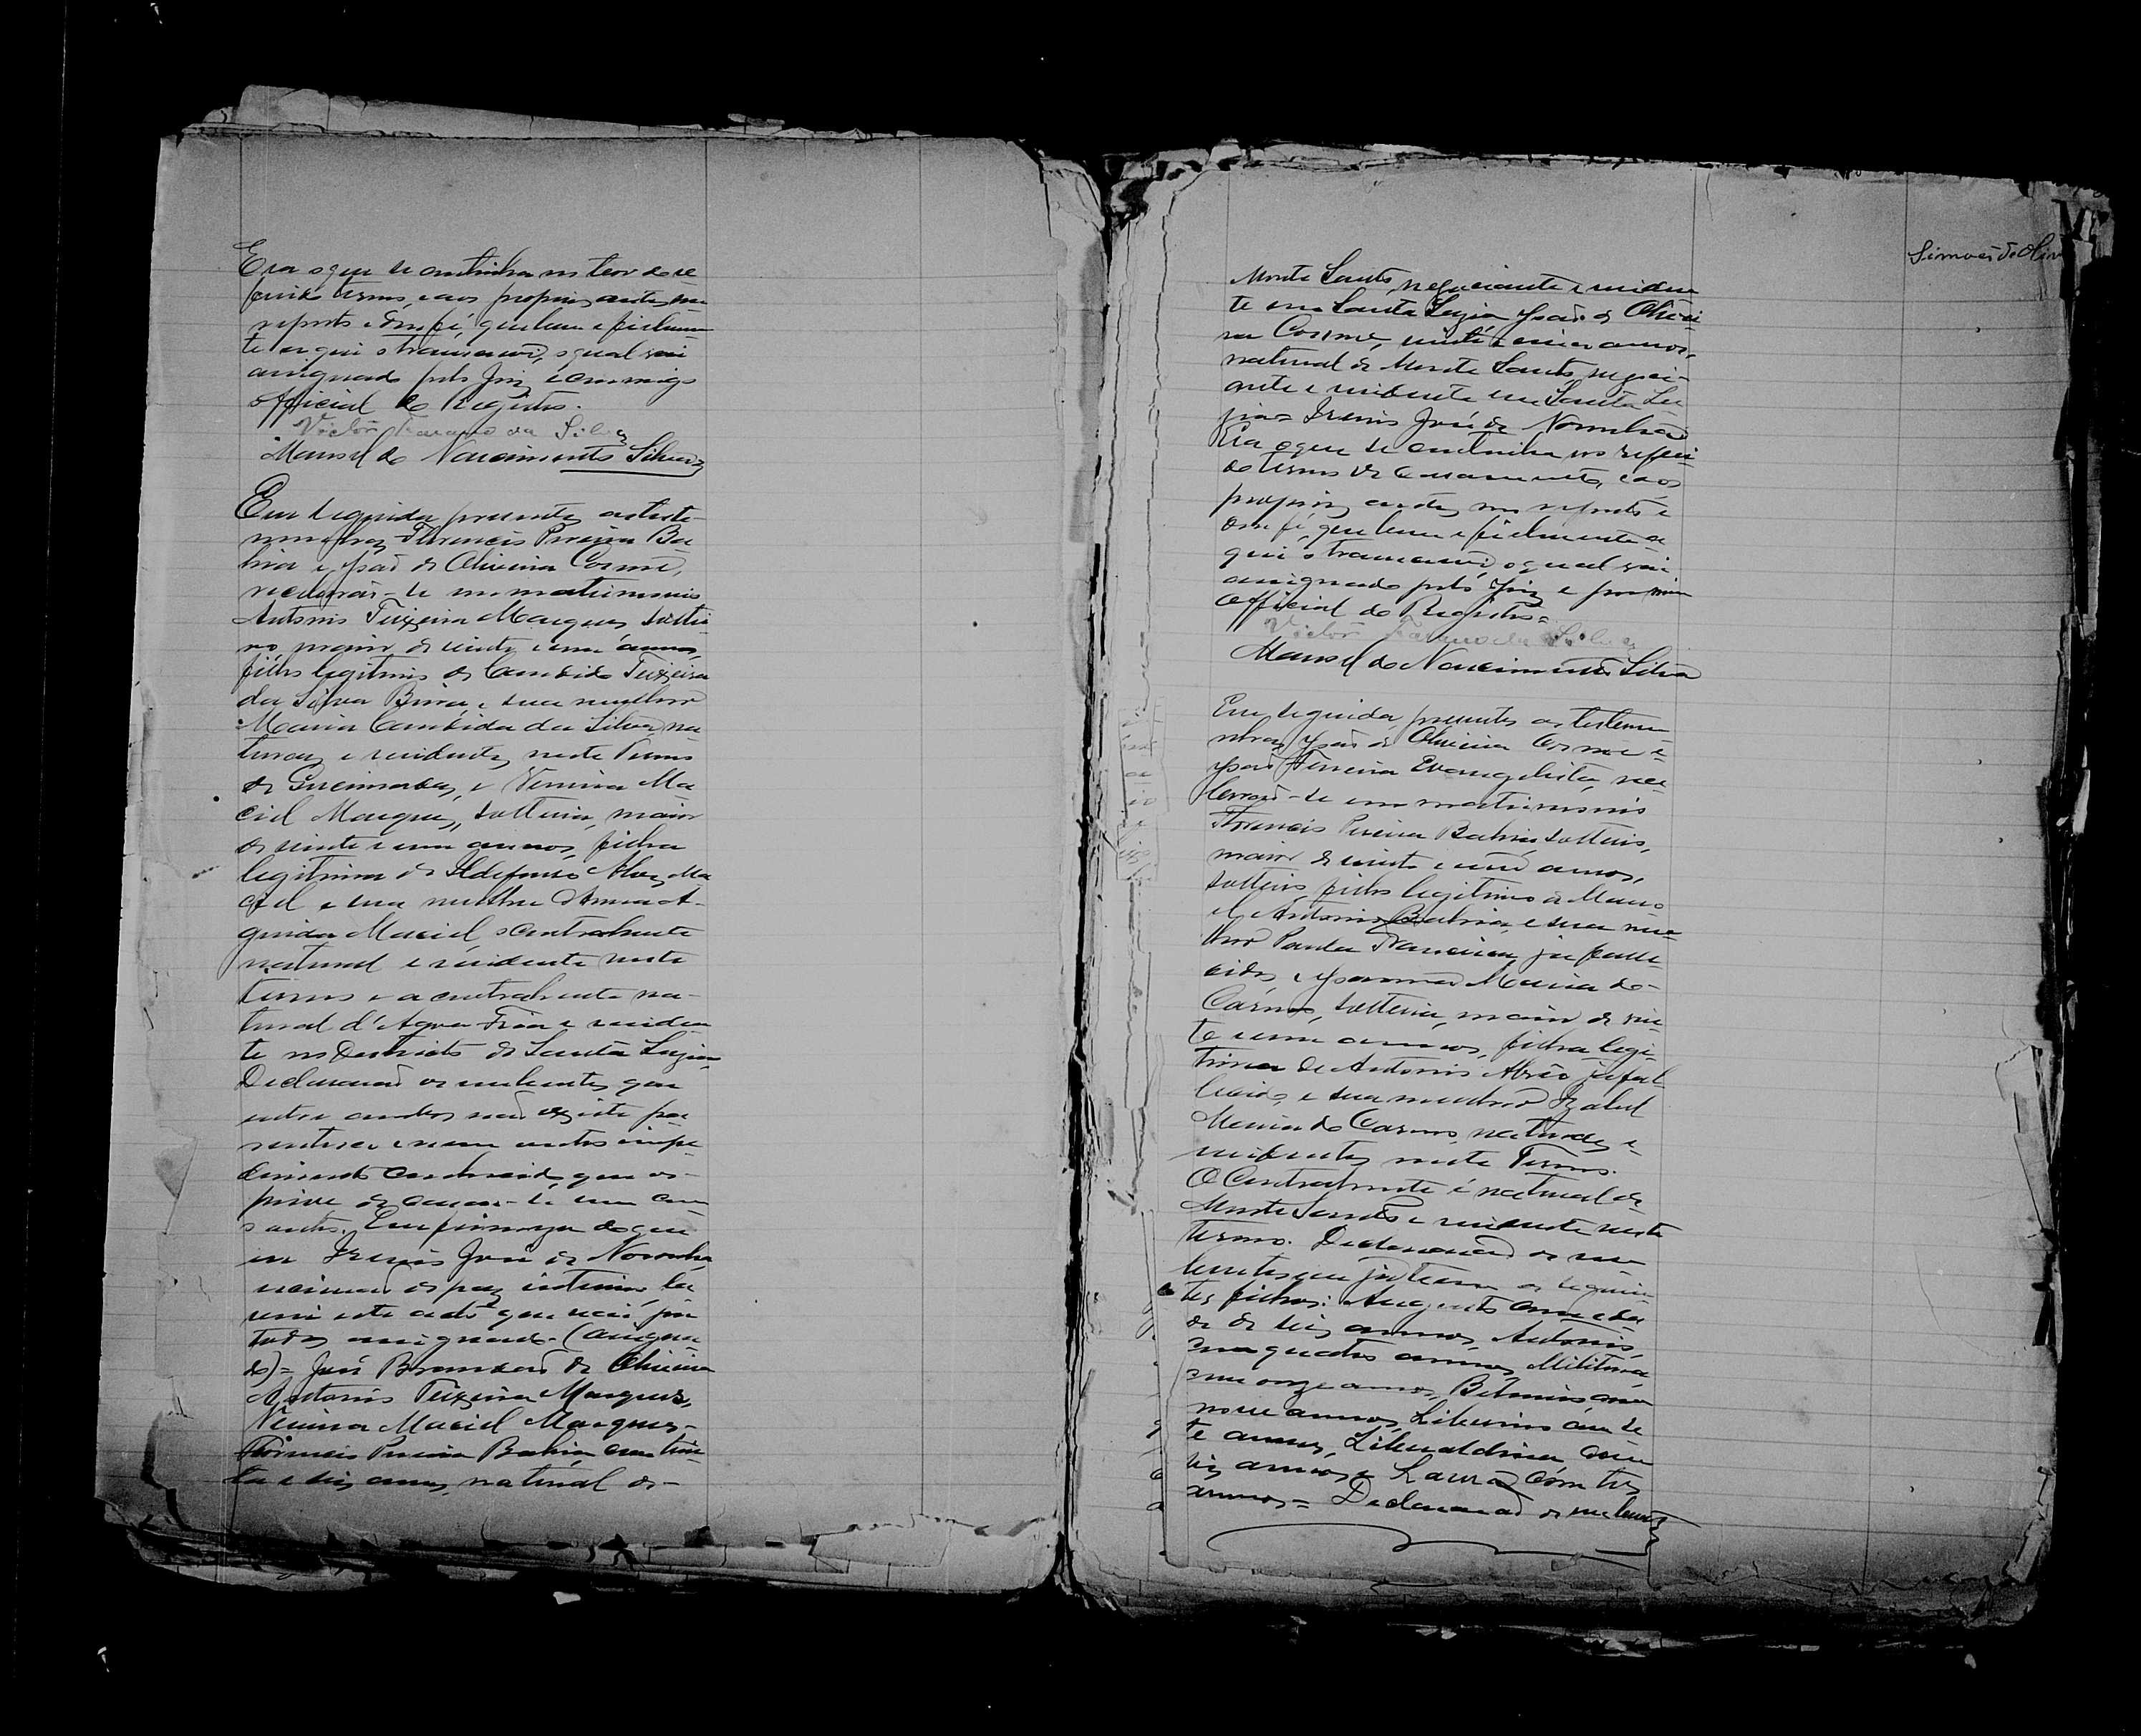 Era o que se continha no teor do re
ferido termo, e aos proprios autos me
reporto e dou fé, que bem e fielmen
te aqui o transcrevi, o qual vai
assignado pelo Juiz e commigo
official do Registro.
Victor da Silva
Manoel do Nascimento Silva
Em seguida presentes as teste
munhas Florencio Pereira Ba
hia e João de Oliveira Cosme,
receberão-se em matrimonio
Antonio Teixeira Marques soltei
ro, maior de vinte e um annos,
filho legitimo de Candido Teixeira
da Silva e sua mulher
Maria Candida da Silva na
turaes e residentes neste Termo
de Queimadas, e Ma
ciel Marques, solteira, maior
de vinte e um annos, filha
legitima de Ildefonso Alves Ma
ciel e sua mulher Anna A-
guida Maciel o contrahente
natural e residente neste
termo e a contrahente na-
tural d'Agua Fria e residen
te no Districto de Santa Luzia.
Declararão os nubentes que
entre ambos não existe pa
rentesco e nem outro impe
dimento conhecido que os
prive de casar-se um com
o outro. Em firmeza do que
eu Irenio José de Noronha,
escrivão de paz interino la
vrei este acto que vai por
todos assignado. (Assigna
do)= José Brandão de Oliveira
Antonio Teixeira Marques,
Maciel Marques-
Florencio Pereira Bahia com trin
ta e seis annos, natural de-
Simões de Oliv
Monte Santo, negociante e residen
te em Santa Luzia João de Olivei
ra Cosme, vinte e cinco annos,
natural de Monte Santo, negoci-
ante e residente em Santa Lu
zia= Irenio José de Noronha
Era o que se continha no referi-
do termo de casamento, e aos
proprios autos me reporto e
dou fé, que bem e fielmente a
qui o transcrevi, o qual vai
assignado pelo Juiz e por mim
Official do Registro=
Victor da Silva
Manoel do Nascimento Silva
Em seguida, presentes as testemu
nhas João de Oliveira Cosme e
João Ferreira Evangelista, rece
berão-se em matrimonio
Florencio Pereira Bahia, solteiro,
maior de vinte e um annos,
solteiro filho legitimo de Mano
el Antonio Bahia e sua mu
lher Paula Francisca, já falle
cidos, e Joanna Maria do
Carmo, solteira, maior de vin
te e um annos, filha legi
tima de Antonio Abrão já fal
lecido, e sua mulher Izabel
Maria do Carmo, naturaes e
residentes neste Termo.
O Contrahente é natural de
Monte Santo e residente neste
termo. Declararão os nu
bentes que já tem os seguin
tes filhos: Augusto com eda
de de seis annos, Antonio,
com quatro annos, Militina,
com onze annos, com
nove annos, Liberino com se
te annos, Liberaldina com
seis annos e Laura com tres
annos= Declararão os nubentes